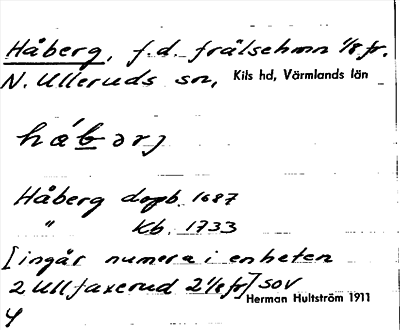 Håberg, f.d. frälsehmn 1/8 fr.
N. Ulleruds sn, Kils hd, Värmlands län
hǽbərj
Håberg dopb. 1687
" Kb. 1733
[ingår numera i enheten
2 Ullfaxerud 2 1/8 fr] SOV
Herman Hultström 1911